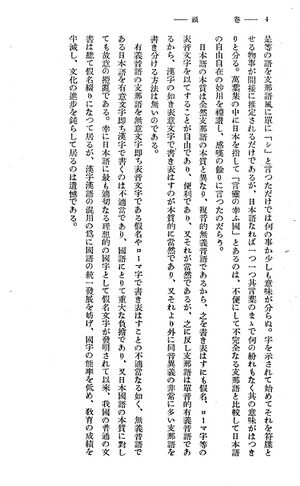 4 ― 巻頭 ―
是等の語を支那語風に單に「シ―」と言つただけでは何の事か少しも意味が分らぬ。字を示されて始めてそれを符牒と
せる物事が間接に推定されるだけであるが、日本語なれば一つ一つ其言葉のまゝで何の紛れもなく其の意味がはつき
りと分る。萬葉集の中に日本を指して「言靈の幸ふ國」とあるのは、不便にして不完全なる支那語と比較して日本語
の自由自在の妙用を禮讃し、感嘆の餘りに言つたのだらう。
日本語の本質は全然支那語の本質と異なり、複音的無義音語であるから、之を書き表はすにも假名、ローマ字等の
表音文字を以てすることが自由であり、便利であり、又それが當然であるが、之に反し支那語は單音的有義音語であ
るから、漢字の如き表意文字で書き表はすのが本質的に當然であり、又それより外に同音異義の非常に多い支那語を
書き分ける方法は無いのである。
有義音語の支那語を無意文字即ち表音文字である假名やローマ字で書き表はすことの不適當なる如く、無義音語で
ある日本語を有意文字即ち漢字で書くのは不適當であり、國語にとりて重大な負擔であり、又日本國語の本質に對し
ても故意の擾亂である。幸に日本語に最も適切なる理想的の國字として假名文字が發明されて以來、我國の普通の文
書は總て假名綴りになつて居るが、漢字漢語の混用の爲に國語の統一發展を妨げ、國字の能率を低め、敎育の成績を
半減し、文化の進步を鈍らして居るのは遺憾である。